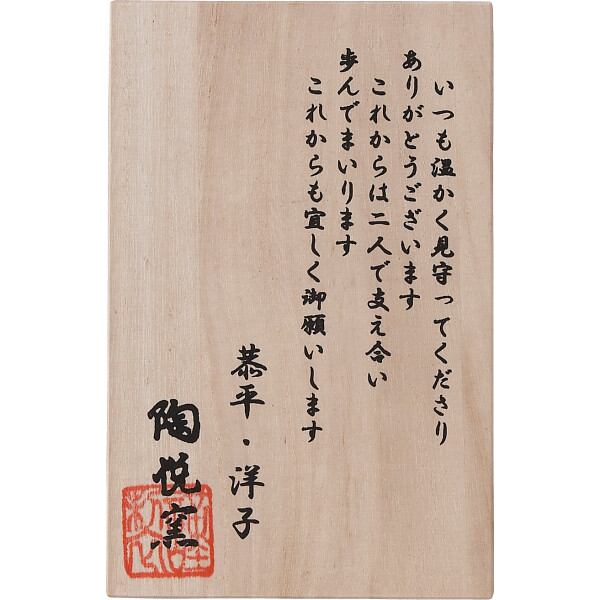 いつも温かく見守ってくださり
ありがとうございます
これからは二人で支え合い
歩んでまいります
これからも宜しく御願いします
恭平・洋子
陶悦窯